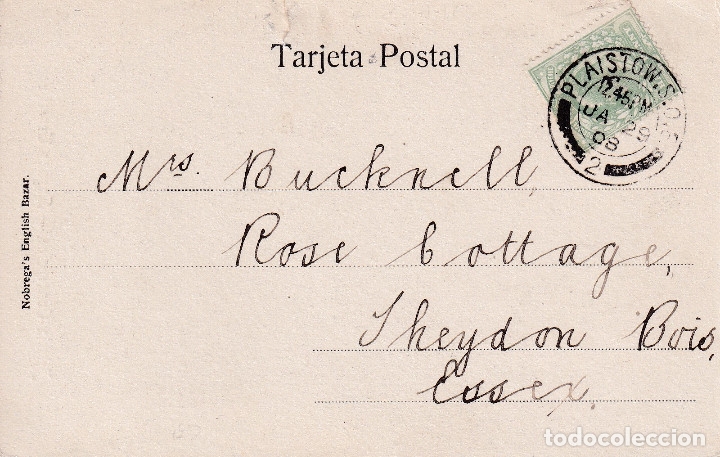 Tarjeta Postal
PLAISTOW. S.O.
12.45 PM
JA 29
08
2
Mrs. Bucknell,
Rose Cottage,
Theydon Bois,
Essex.
Nobrega's English Bazar.
todocoleccion.net